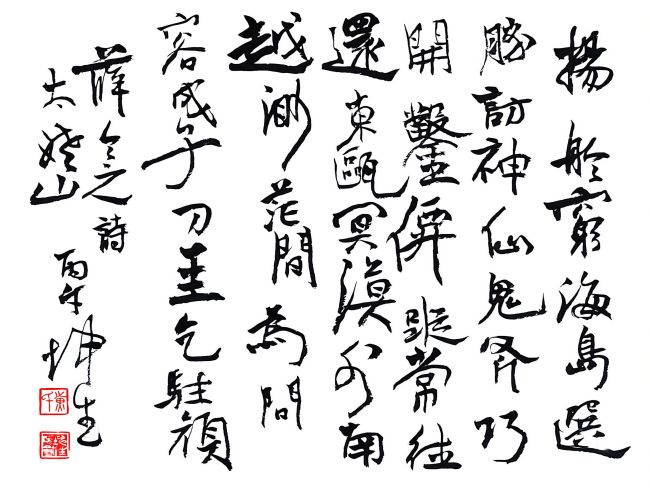 揚舲窮海島選
勝訪神仙鬼斧巧
開鑿僊蹤常往
還東甌冥漠外南
越渺茫間為問
容成子刀圭乞駐顏
薛令之詩
太姥山
丙午坤生